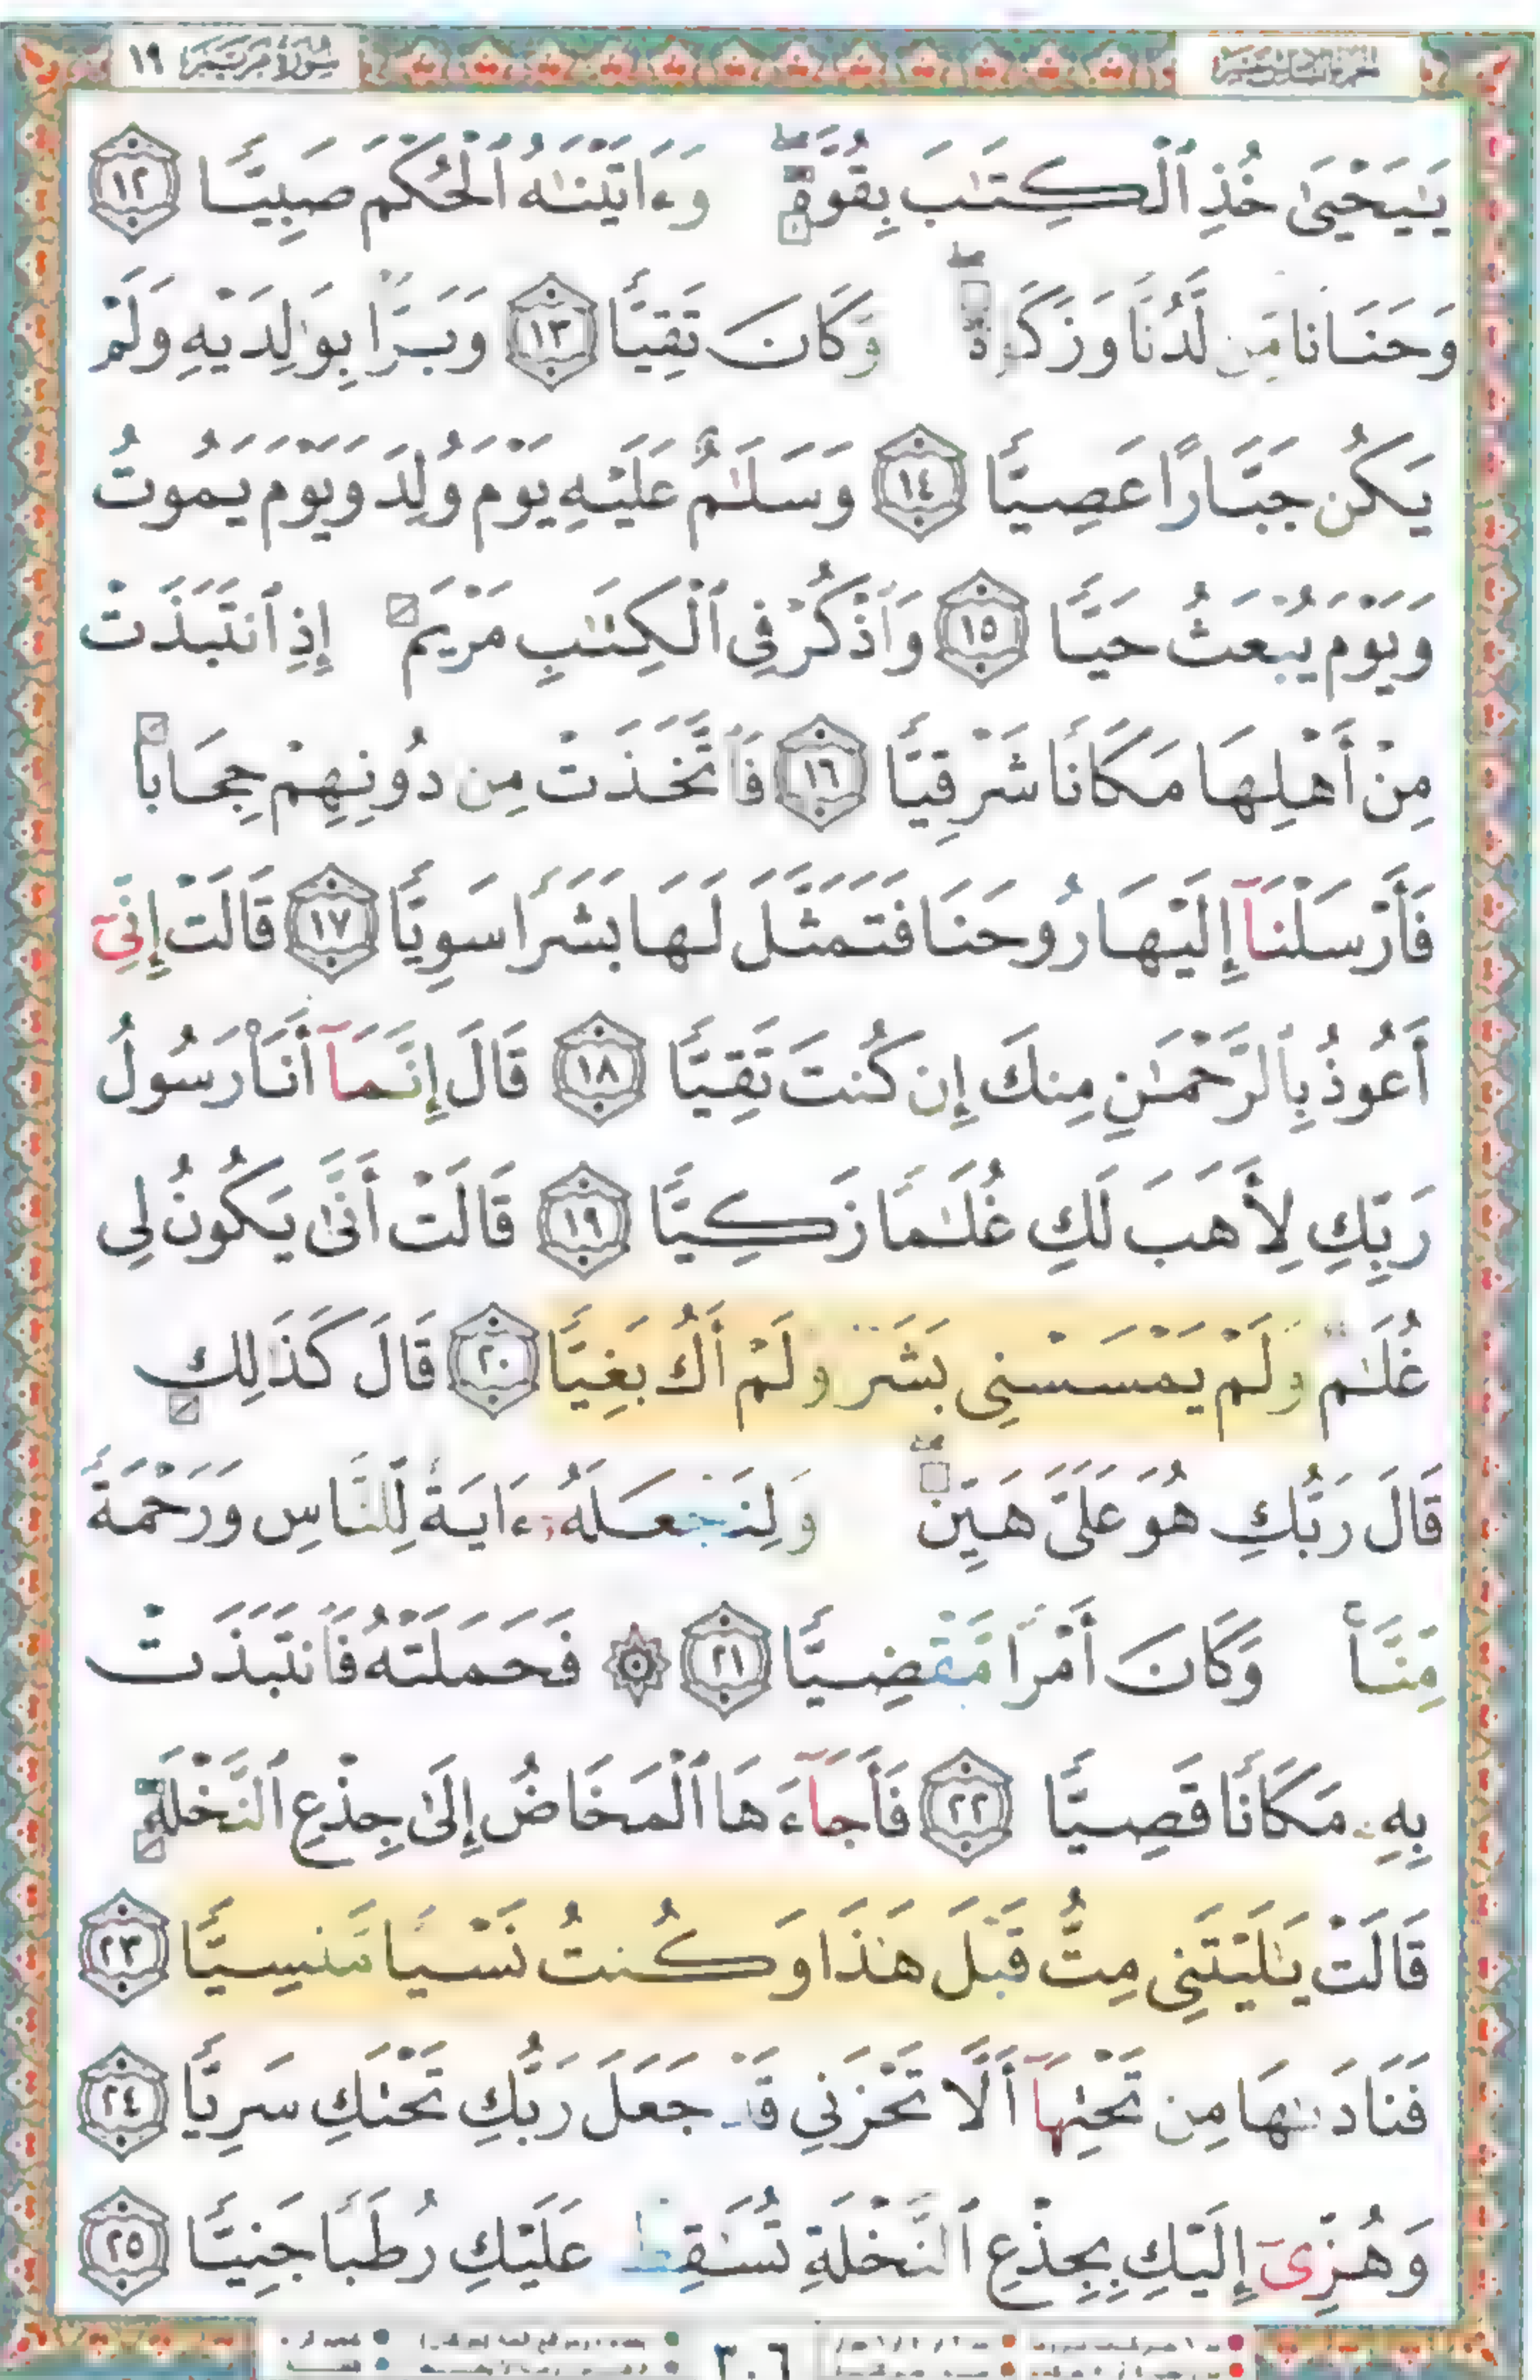 سورة مريم ١٩
الجزء السادس عشر
يَٰيَحْيَىٰ خُذِ ٱلْكِتَٰبَ بِقُوَّةٍۖ وَءَاتَيْنَٰهُ ٱلْحُكْمَ صَبِيًّا ١٢
وَحَنَانًا مِّن لَّدُنَّا وَزَكَوٰةًۖ وَكَانَ تَقِيًّا ١٣ وَبَرًّۢا بِوَٰلِدَيْهِ وَلَمْ
يَكُن جَبَّارًا عَصِيًّا ١٤ وَسَلَٰمٌ عَلَيْهِ يَوْمَ وُلِدَ وَيَوْمَ يَمُوتُ
وَيَوْمَ يُبْعَثُ حَيًّا ١٥ وَٱذْكُرْ فِى ٱلْكِتَٰبِ مَرْيَمَ إِذِ ٱنتَبَذَتْ
مِنْ أَهْلِهَا مَكَانًا شَرْقِيًّا ١٦ فَٱتَّخَذَتْ مِن دُونِهِمْ حِجَابًا
فَأَرْسَلْنَآ إِلَيْهَا رُوحَنَا فَتَمَثَّلَ لَهَا بَشَرًا سَوِيًّا ١٧ قَالَتْ إِنِّىٓ
أَعُوذُ بِٱلرَّحْمَٰنِ مِنكَ إِن كُنتَ تَقِيًّا ١٨ قَالَ إِنَّمَآ أَنَا۠ رَسُولُ
رَبِّكِ لِأَهَبَ لَكِ غُلَٰمًا زَكِيًّا ١٩ قَالَتْ أَنَّىٰ يَكُونُ لِى
غُلَٰمٌ وَلَمْ يَمْسَسْنِى بَشَرٌ وَلَمْ أَكُ بَغِيًّا ٢٠ قَالَ كَذَٰلِكِ
قَالَ رَبُّكِ هُوَ عَلَىَّ هَيِّنٌۖ وَلِنَجْعَلَهُۥٓ ءَايَةً لِّلنَّاسِ وَرَحْمَةً
مِّنَّا وَكَانَ أَمْرًا مَّقْضِيًّا ٢١ ۞ فَحَمَلَتْهُ فَٱنتَبَذَتْ
بِهِۦ مَكَانًا قَصِيًّا ٢٢ فَأَجَآءَهَا ٱلْمَخَاضُ إِلَىٰ جِذْعِ ٱلنَّخْلَةِ
قَالَتْ يَٰلَيْتَنِى مِتُّ قَبْلَ هَٰذَا وَكُنتُ نَسْيًا مَّنسِيًّا ٢٣
فَنَادَىٰهَا مِن تَحْتِهَآ أَلَّا تَحْزَنِى قَدْ جَعَلَ رَبُّكِ تَحْتَكِ سَرِيًّا ٢٤
وَهُزِّىٓ إِلَيْكِ بِجِذْعِ ٱلنَّخْلَةِ تُسَٰقِطْ عَلَيْكِ رُطَبًا جَنِيًّا ٢٥
٣٠٦